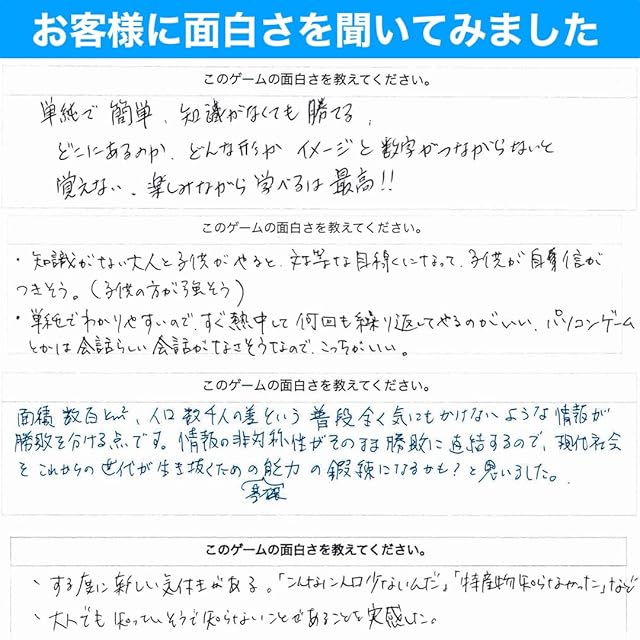 お客様に面白さを聞いてみました
このゲームの面白さを教えてください。
単純で簡単、知識がなくても勝てる、
どこにあるのか、どんな形か イメージと数字がつながらないと
覚えない、楽しみながら学べるは最高!!
このゲームの面白さを教えてください。
・知識がない大人と子供がやると、対等な目線になって、子供が自信が
つきそう。(子供の方が強そう)
・単純でわかりやすいので、すぐ熱中して何回も繰り返してやるのがいい、パソコンゲーム
とかは会話らしい会話がなさそうなので、こっちがいい。
このゲームの面白さを教えてください。
面積数百km²、人口数千人の差という普段全く気にもかけないような情報が
勝敗を分ける点です。情報の非対称性がそのまま勝敗に直結するので、現代社会
をこれからの世代が生き抜くための能力の鍛練になるかも?と思いました。
基礎
このゲームの面白さを教えてください。
、する度に新しい発見がある。「こんなに人口少ないんだ」「特産物知らなかった」など
、大人でも知っていそうで知らないことがあることを実感した。